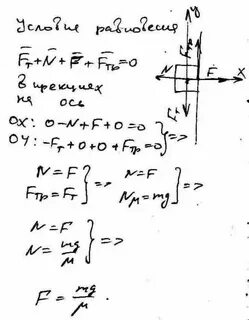 Условие равновесия
F̅т + N̅ + F̅ + F̅тр = 0
в прекциях
на ось
OX: 0-N+F+0=0
OY: -Fт+0+0+Fтр=0 } =>
N=F
Fтр=Fт } =>
N=F
Nμ=mg } =>
N=F
N= mg/μ } =>
F = mg/μ.
y
Fтр
N
F
x
Fт